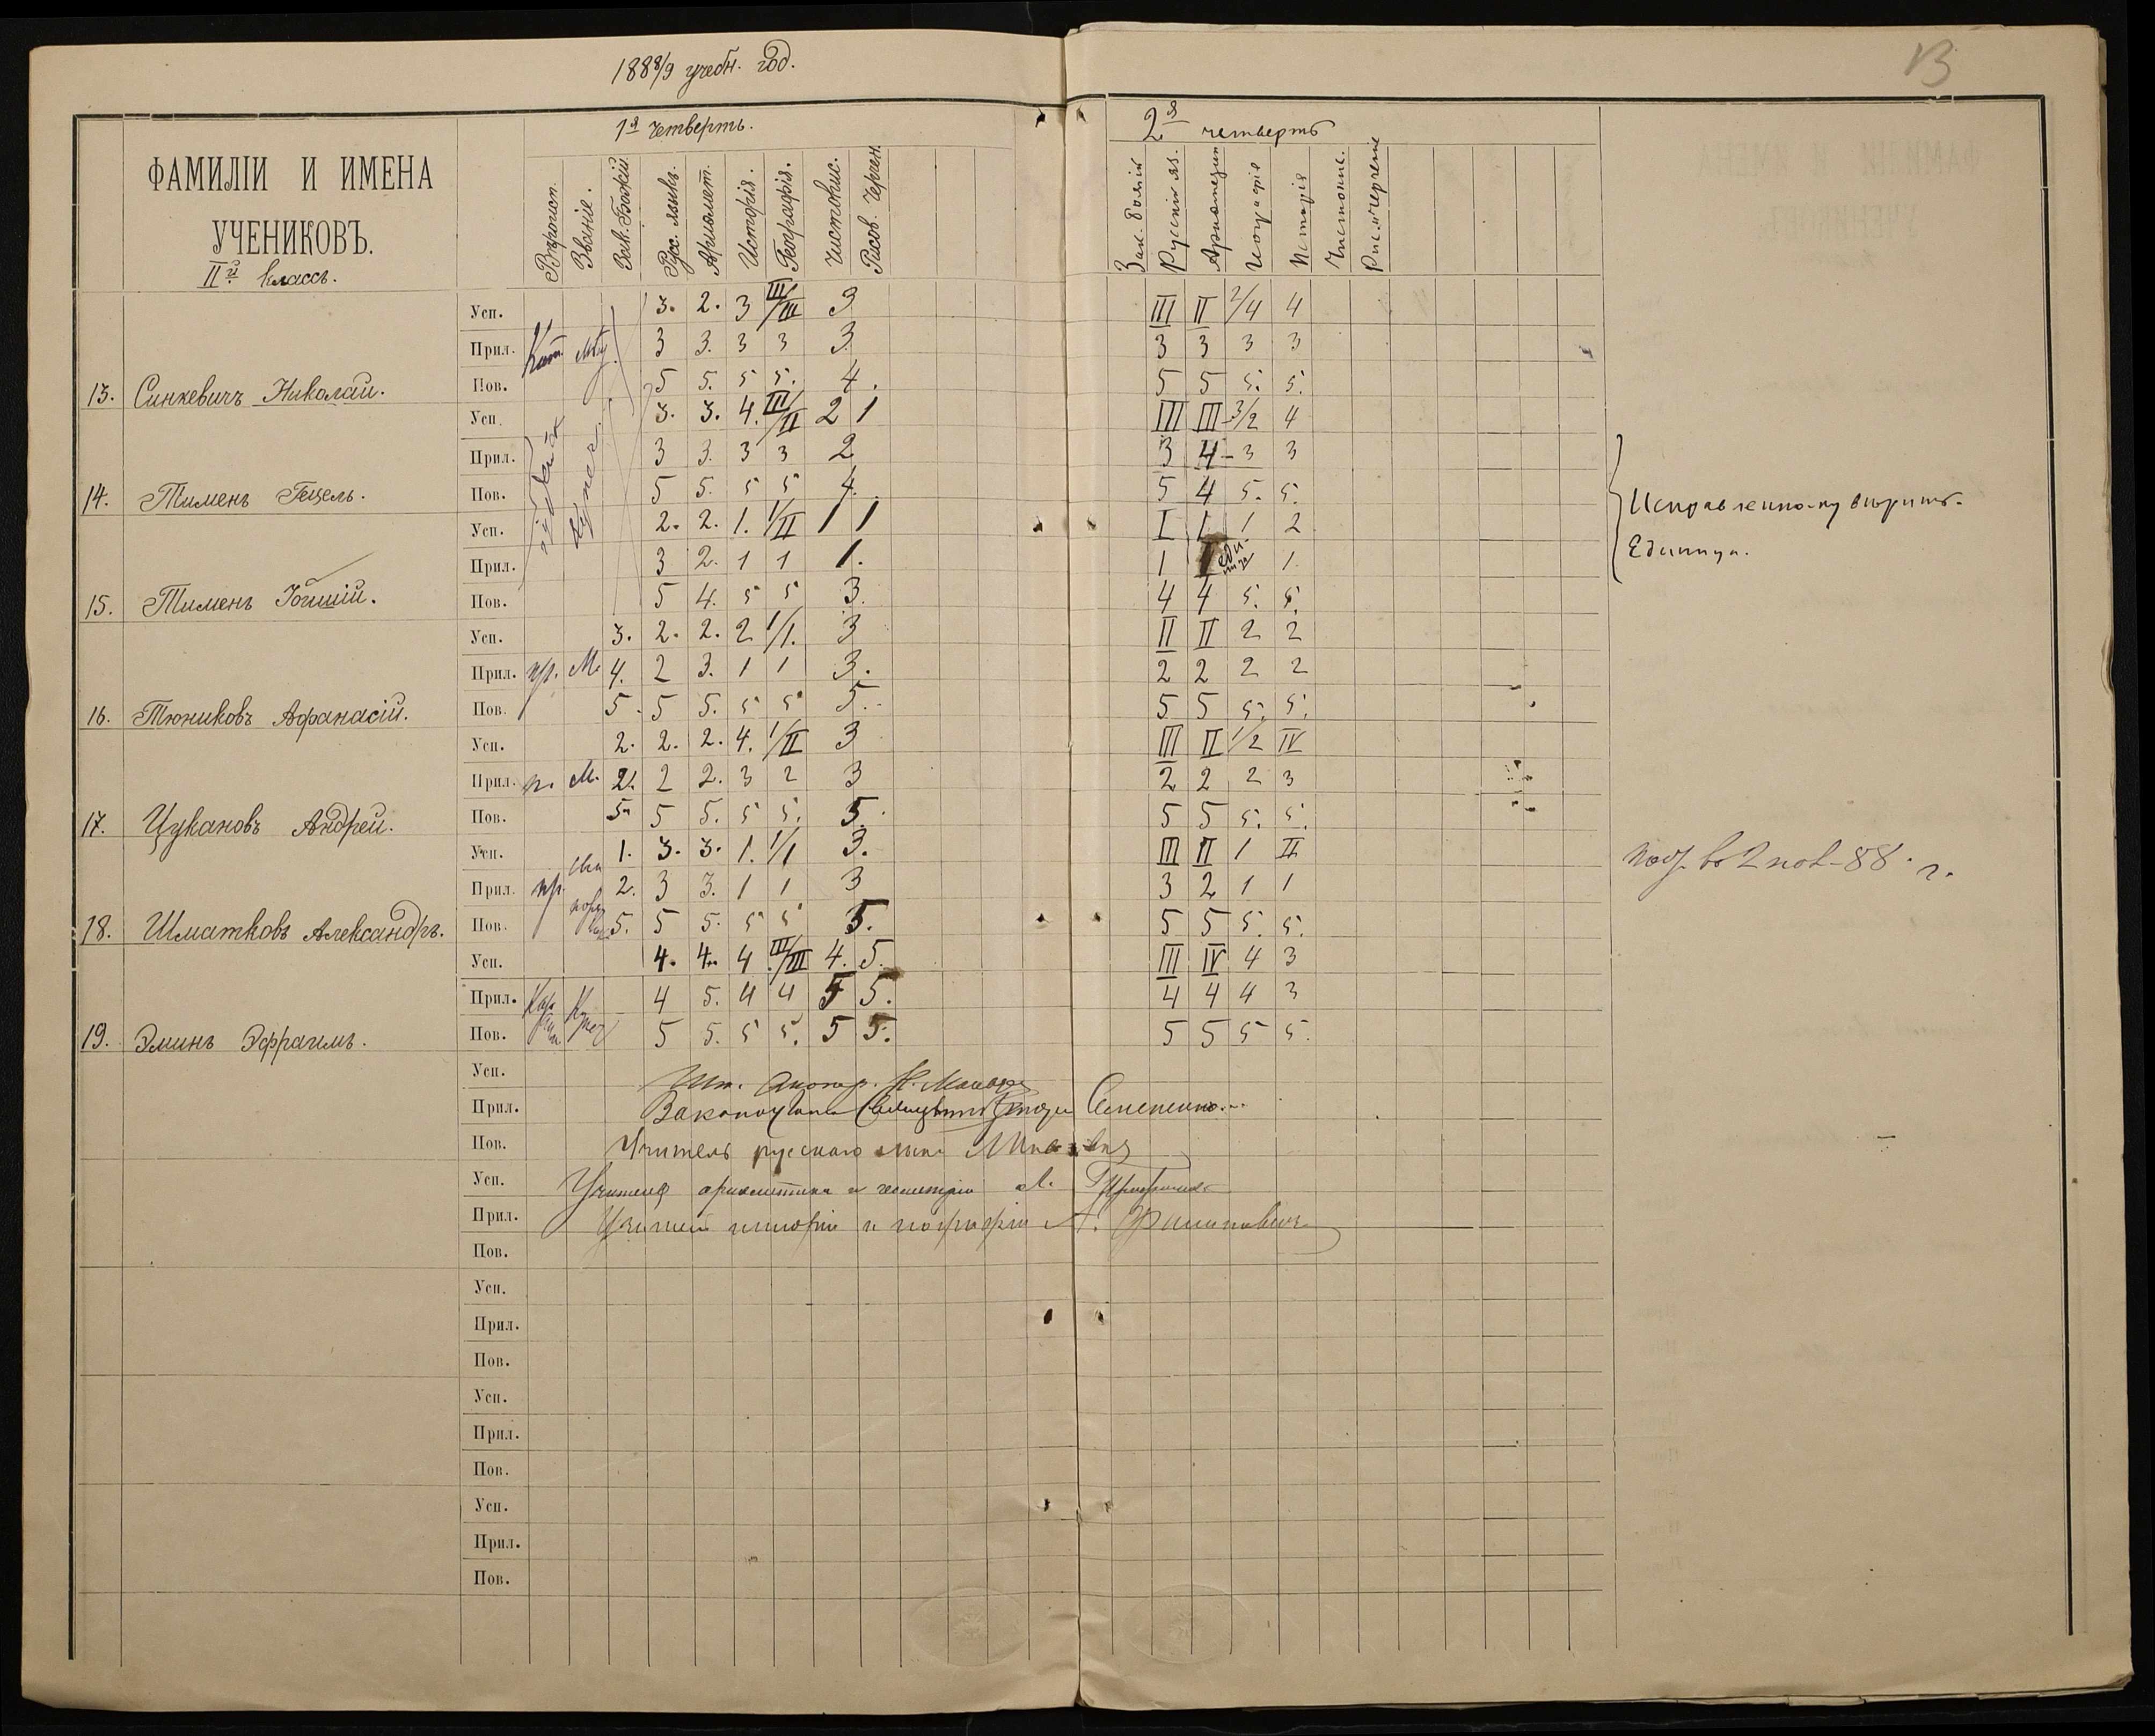 1888/9 учебн. год.
13
ФАМИЛІИ И ИМЕНА
УЧЕНИКОВЪ.
IIй классъ.
1я четверть.
Вѣроисп. Званіе. Зак. Божій Рус. языкъ. Ариѳмет. Исторія. Географія. Чистопис. Рисов. Черчен.
2я четверть
Зак. Божій Русскій яз. Ариѳметик Географія Исторія Чистопис. Рис. и черченіе
Усп. 3. 2. 3 III/III 3 III II 2/4 4
Прил. Кат. Мѣщ. 3 3. 3 3 3 3 3 3 3
13. Синкевичъ Николай. Пов. 5 5. 5 5. 4. 5 5 5. 5.
Усп. 3. 3. 4. III/II 2 1 III III 3/2 4
Прил. 3 3. 3 3 2 3 4 3 3
14. Тименъ Гецель. Пов. 5 5. 5 5 4. 5 4 5. 5.
Усп. 2. 2. 1. 1/II 1 1 I 1 1 2
Исправленному вѣрить.
Прил. 3 2. 1 1 1. 1 1 еди-ница 1.
Единица.
15. Тименъ Пов. 5 4. 5 5 3. 4 4 5. 5.
Усп. 3. 2. 2. 2 1/1. 3 II II 2 2
Прил. пр. М. 4. 2 3. 1 1 3. 2 2 2 2
16. Тюниковъ Афанасій. Пов. 5. 5 5. 5 5 5. 5 5 5. 5.
Усп. 2. 2. 2. 4. 1/II 3 III II 1/2 IV
Прил. п. М. 2. 2 2. 3 2 3 2 2 2 3
17. Цукановъ Андрей. Пов. 5. 5 5. 5 5. 5. 5 5 5. 5.
Усп. 1. 3. 3. 1. 1/1 3. III II 1 II
во 2 пол. 88 г.
Прил. пр. 2. 3 3. 1 1 3 3 2 1 1
18. Шматковъ Александръ. Пов. 5. 5 5. 5 5 5. 5 5 5. 5.
Усп. 4. 4. 4 III/III 4. 5. III IV 4 3
Прил. 4 5. 4 4 5 5. 4 4 4 3
19. Эминъ Эфраимъ. Пов. 5 5. 5 5. 5 5. 5 5 5 5.
Усп.
Прил. Законоуч. Священникъ
Пов. Учитель русскаго языка
Усп. Учитель ариѳметики и геометріи
Прил. Учитель исторіи и географіи
Пов.
Усп.
Прил.
Пов.
Усп.
Прил.
Пов.
Усп.
Прил.
Пов.